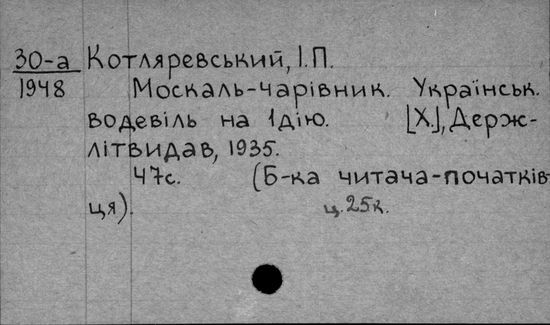 30-а Котляревський, І.П.
1948 Москаль-чарівник. Українськ.
водевіль на 1дію. [Х.], Держ-
літвидав, 1935.
47с. (Б-ка читача-початків-
ця). ц. 25к.